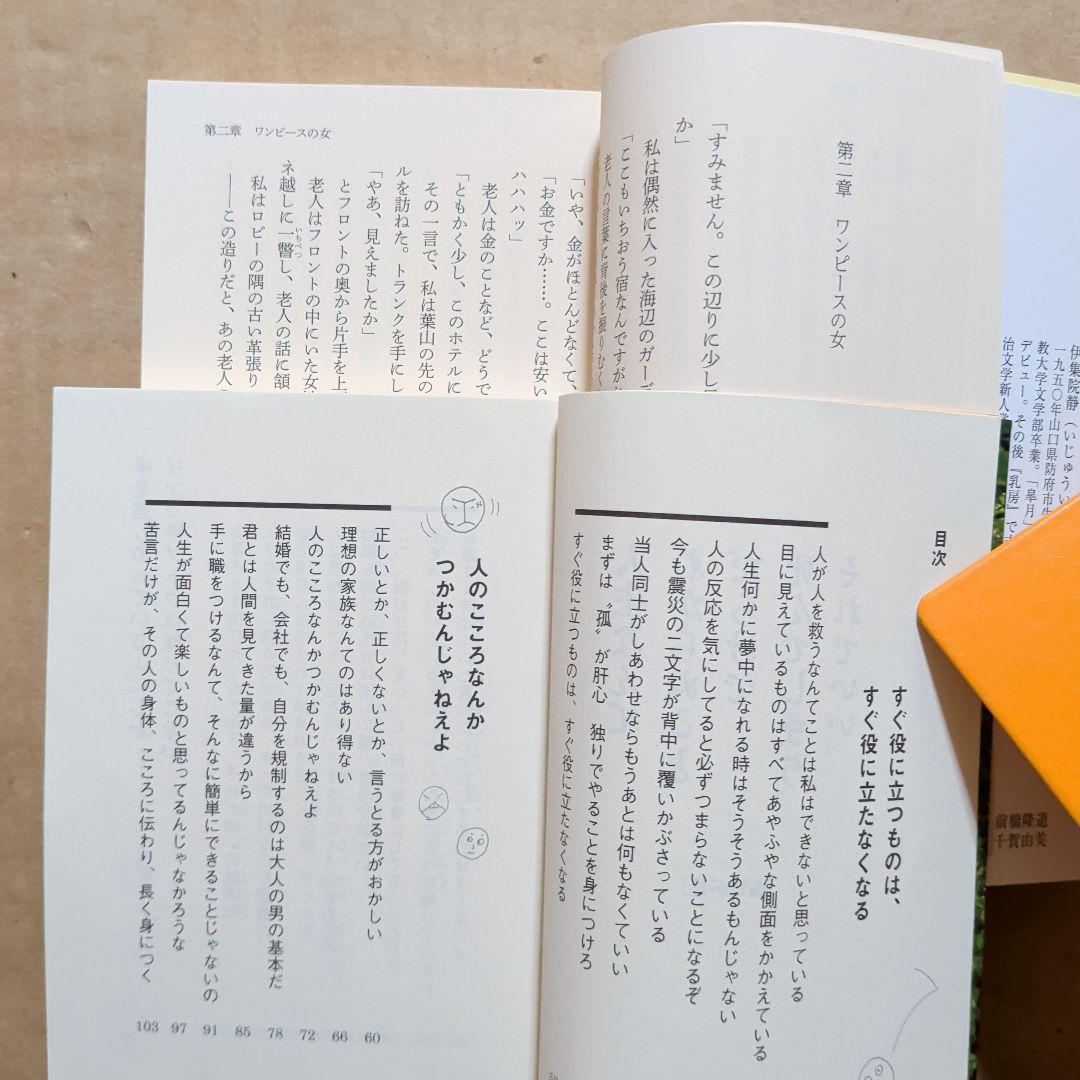 第二章 ワンピースの女
「すみません。この辺りに少し
か」
私は偶然に入った海辺のガーデ
「ここもいちおう宿なんですが
老人の言葉に背後を振りむく
第二章 ワンピースの女
「いや、金がほとんどなくて、
「お金ですか……。ここは安い
ハハハッ」
老人は金のことなど、どうで
「ともかく少し、このホテルに
その一言で、私は葉山の先の
ルを訪ねた。トランクを手にし
「やあ、見えましたか」
とフロントの奥から片手を上
老人はフロントの中にいた女
ネ越しに一瞥し、老人の話に頷
いちべつ
私はロビーの隅の古い革張り
――この造りだと、あの老人
伊集院静（いじゅうい
一九五〇年山口県防府市生
教大学文学部卒業。「皐月」
デビュー。その後『乳房』で
治文学新人
前橋隆道
千賀由美
目次
すぐ役に立つものは、
すぐ役に立たなくなる
人が人を救うなんてことは私はできないと思っている
目に見えているものはすべてあやふやな側面をかかえている
人生何かに夢中になれる時はそうそうあるもんじゃない
人の反応を気にしてると必ずつまらないことになるぞ
今も震災の二文字が背中に覆いかぶさっている
当人同士がしあわせならもうあとは何もなくていい
まずは〝孤〟が肝心 独りでやることを身につけろ
すぐ役に立つものは、すぐ役に立たなくなる
人のこころなんか
つかむんじゃねえよ
正しいとか、正しくないとか、言うとる方がおかしい 60
理想の家族なんてのはあり得ない 66
人のこころなんかつかむんじゃねえよ 72
結婚でも、会社でも、自分を規制するのは大人の男の基本だ 78
君とは人間を見てきた量が違うから 85
手に職をつけるなんて、そんなに簡単にできることじゃないの 91
人生が面白くて楽しいものと思ってるんじゃなかろうな 97
苦言だけが、その人の身体、こころに伝わり、長く身につく 103